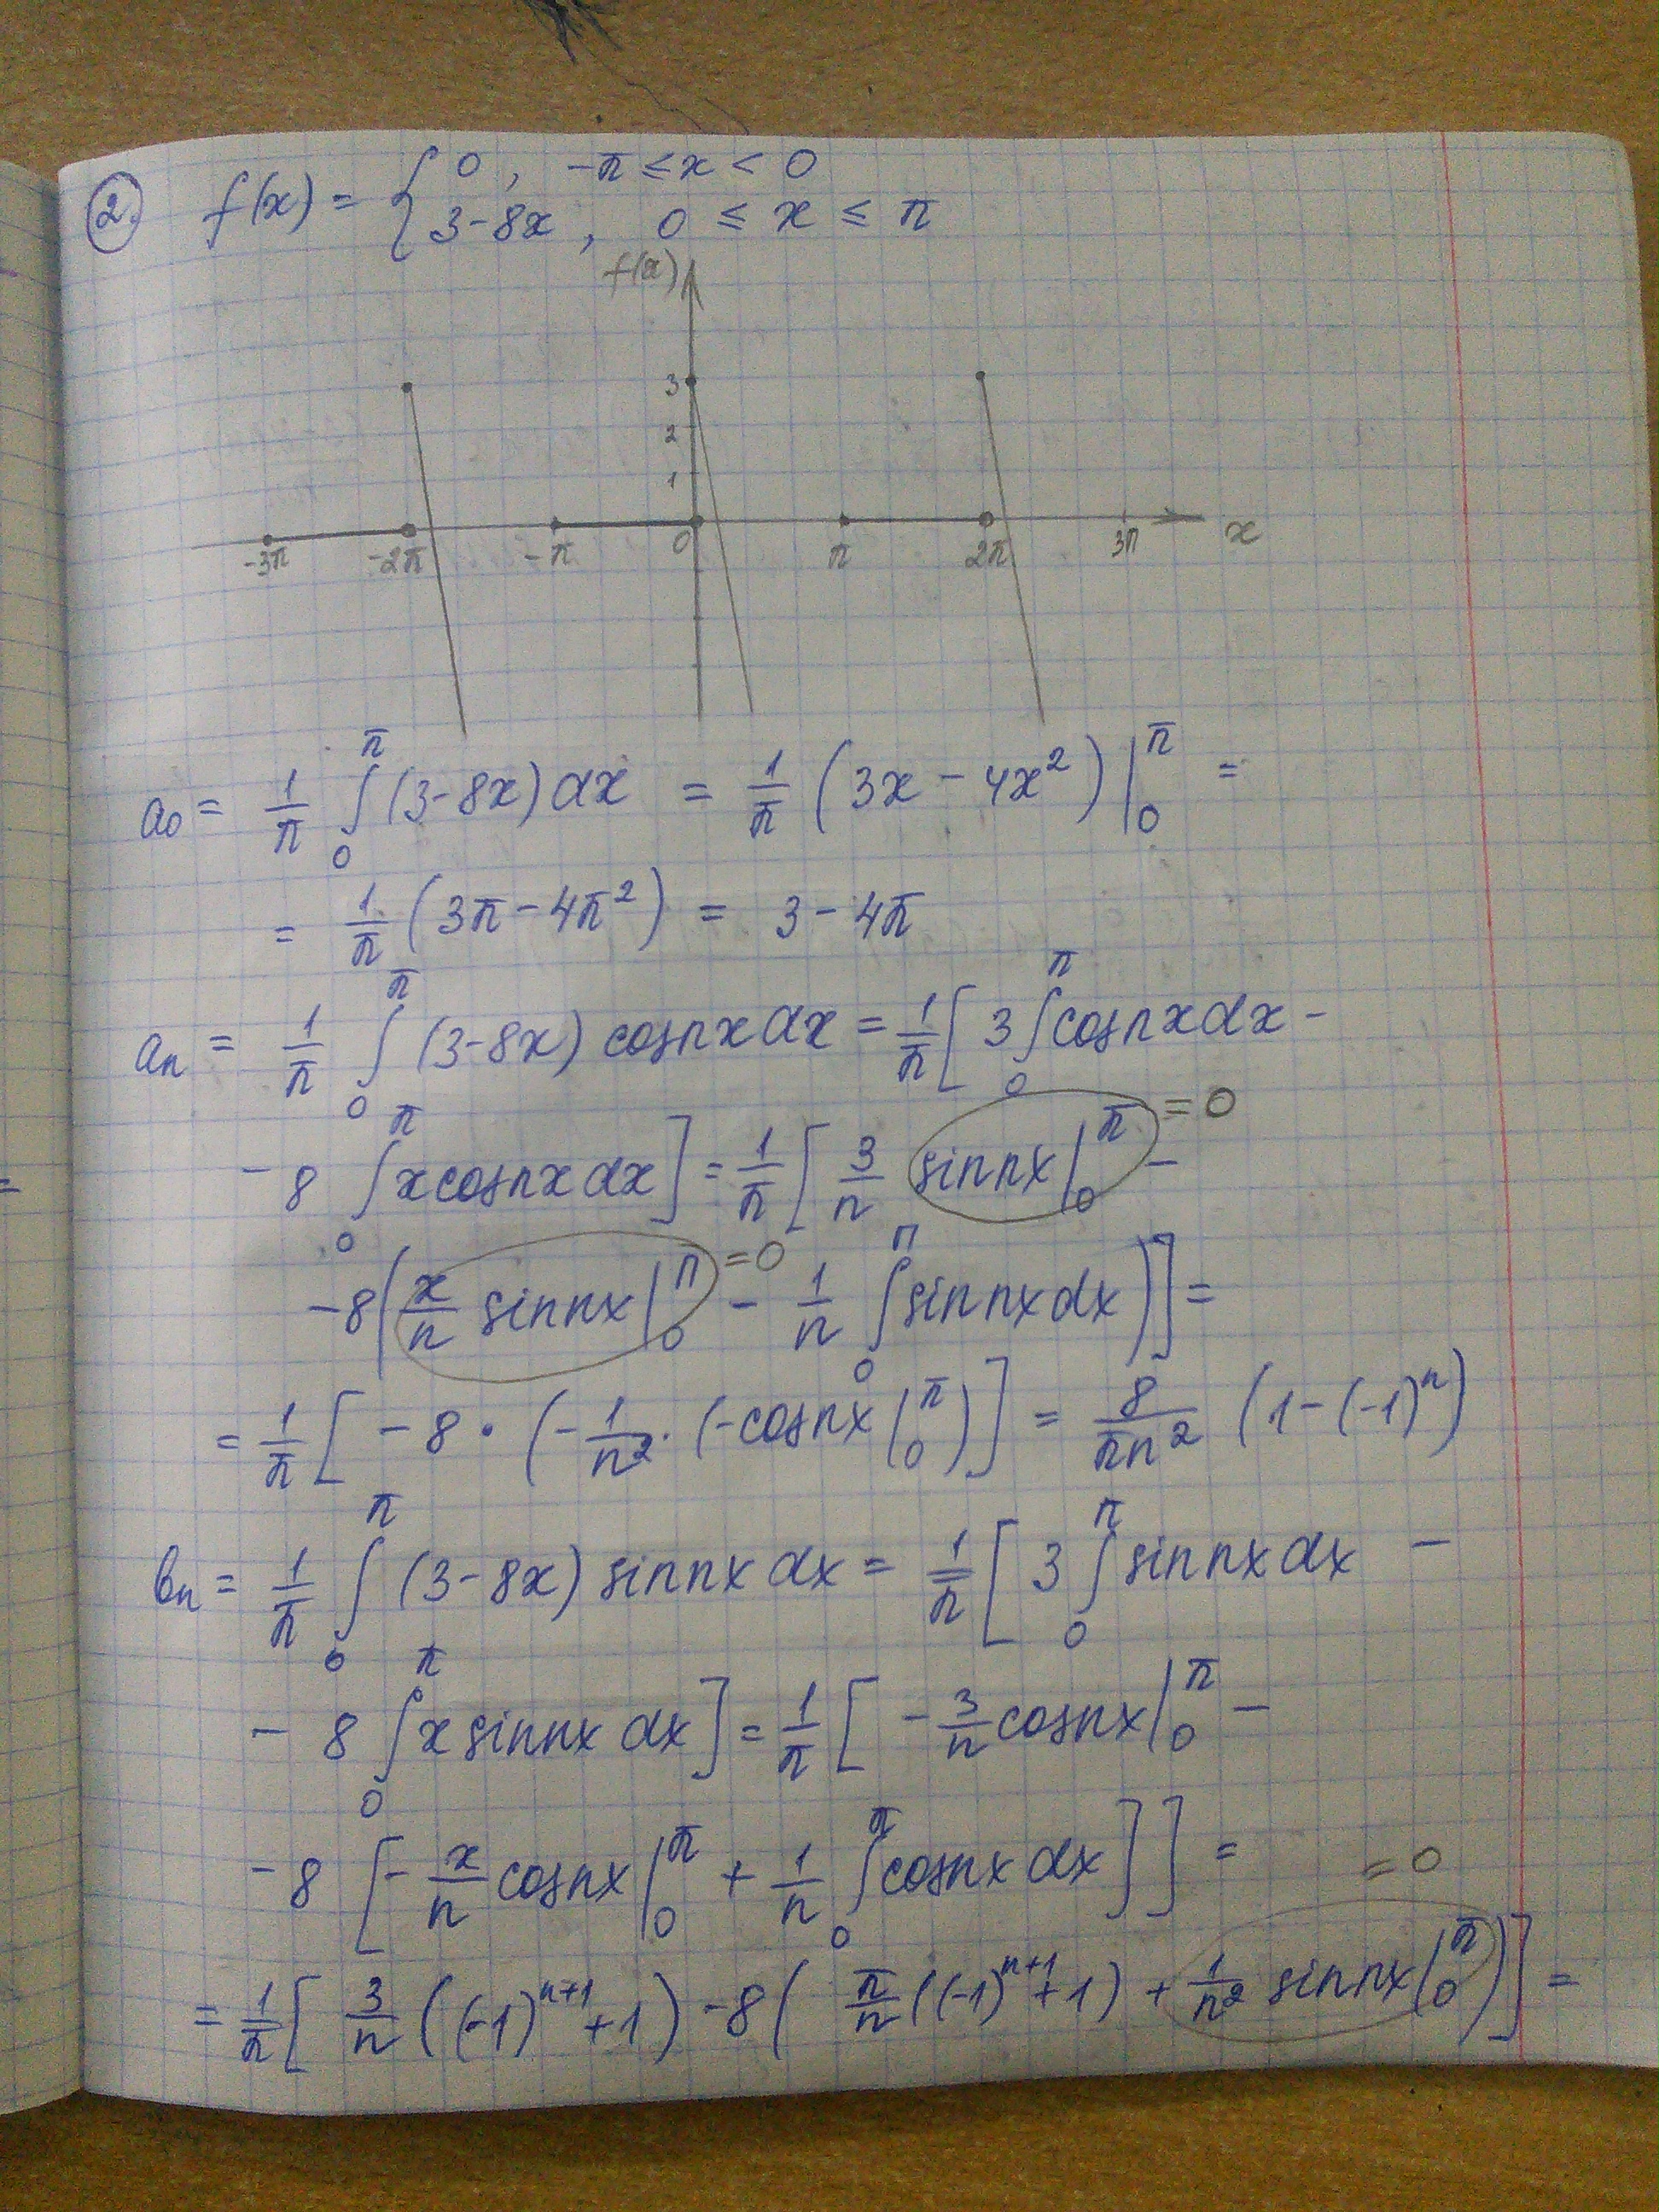 2. f(x) = { 0 , -π ≤ x < 0
3-8x , 0 ≤ x ≤ π
f(x)
3
2
1
-3π -2π -π 0 π 2π 3π x
a₀ = 1/π ∫₀^π (3-8x) dx = 1/π (3x - 4x²) |₀^π =
= 1/π (3π - 4π²) = 3 - 4π
aₙ = 1/π ∫₀^π (3-8x) cosnx dx = 1/π [ 3 ∫₀^π cosnx dx -
- 8 ∫₀^π x cosnx dx ] = 1/π [ 3/n sinnx |₀^π = 0 -
-8 ( x/n sinnx |₀^π = 0 - 1/n ∫₀^π sinnx dx ) ] =
= 1/π [ - 8 · ( - 1/n² · (-cosnx |₀^π ) ] = 8/πn² (1 - (-1)ⁿ)
bₙ = 1/π ∫₀^π (3-8x) sinnx dx = 1/π [ 3 ∫₀^π sinnx dx -
- 8 ∫₀^π x sinnx dx ] = 1/π [ - 3/n cosnx |₀^π -
- 8 [ - x/n cosnx |₀^π + 1/n ∫₀^π cosnx dx ] ] =
= 1/π [ 3/n ((-1)ⁿ⁺¹ + 1) - 8 ( π/n ((-1)ⁿ⁺¹ + 1) + 1/n² sinnx |₀^π = 0 ) ] =
=